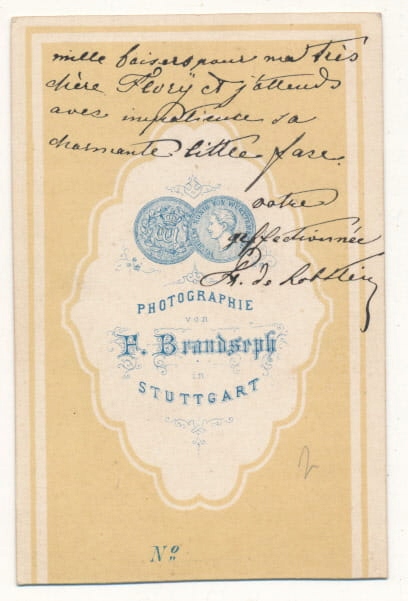 mille baisers pour ma très
chère Flory et j'attends
avec impatience sa
charmante little face.
votre
affectionnée
de
PHOTOGRAPHIE
von
F. Brandseph
in
STUTTGART
No